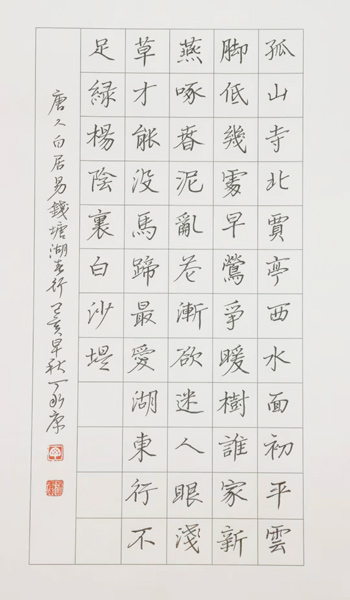 孤山寺北賈亭西水面初平雲
脚低幾處早鶯爭暖樹誰家新
燕啄春泥亂花漸欲迷人眼淺
草才能没馬蹄最愛湖東行不
足緑楊陰裏白沙堤
唐人白居易錢塘湖春行己亥早秋丁永康